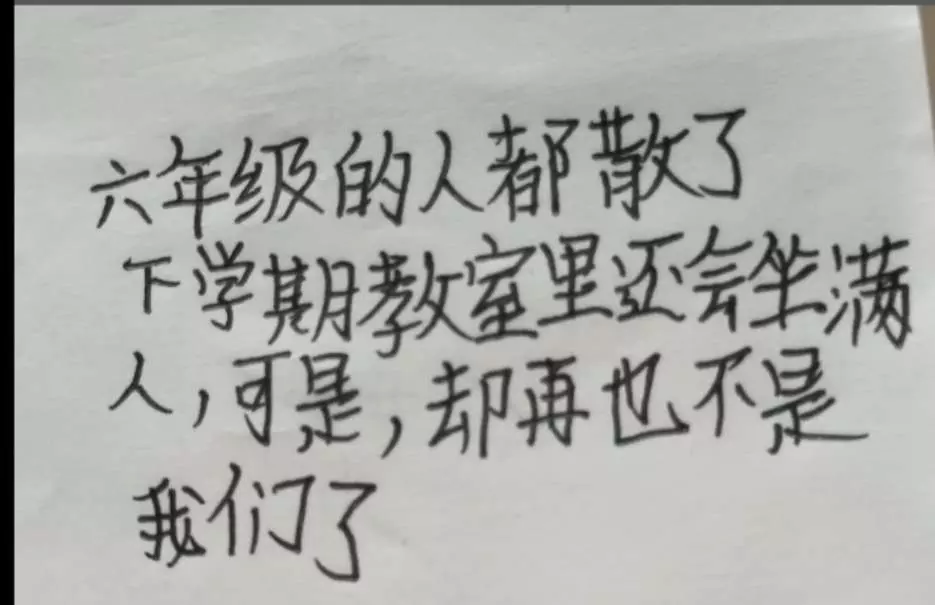 六年级的人都散了
下学期教室里还会坐满
人,可是,却再也不是
我们了